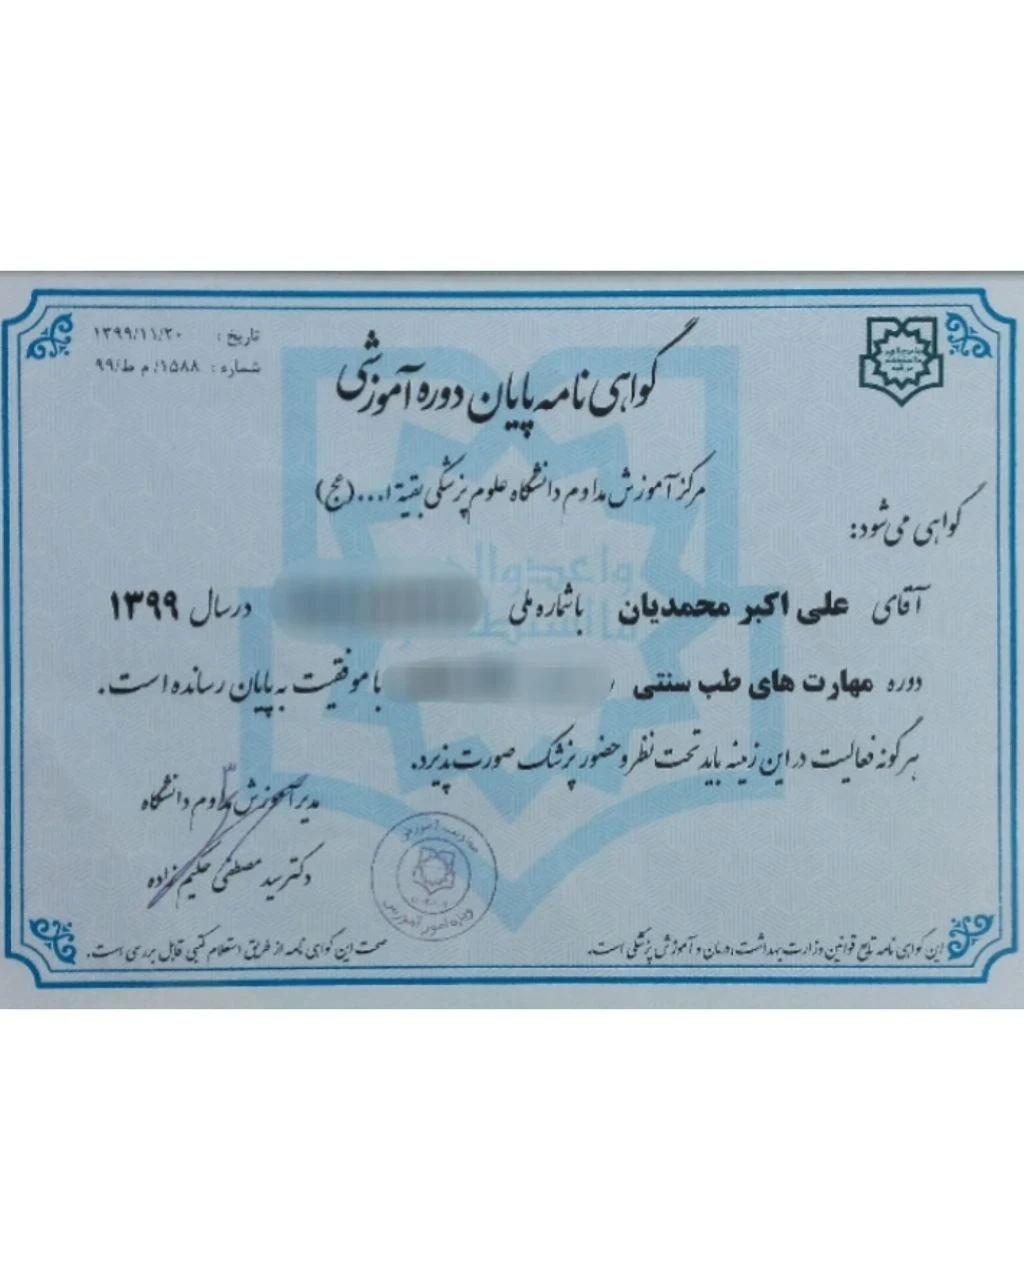 تاریخ : ۱۳۹۹/۱۱/۲۰
شماره : ۱۵۸۸/ م ط/۹۹
گواهی نامه پایان دوره آموزشی
مرکز آموزش مداوم دانشگاه علوم پزشکی بقیة ا...(عج)
گواهی می‌شود:
آقای علی اکبر محمدیان با شماره ملی در سال ۱۳۹۹
دوره مهارت های طب سنتی با موفقیت به پایان رسانده است.
هرگونه فعالیت در این زمینه باید تحت نظر و حضور پزشک صورت پذیرد.
مدیر آموزش مداوم دانشگاه
دکتر سید مصطفی حکیم زاده
معاونت آموزش
ویژه امور آموزش
این گواهی نامه تابع قوانین وزارت بهداشت، درمان و آموزش پزشکی است.
صحت این گواهی نامه از طریق استعلام کتبی قابل بررسی است.